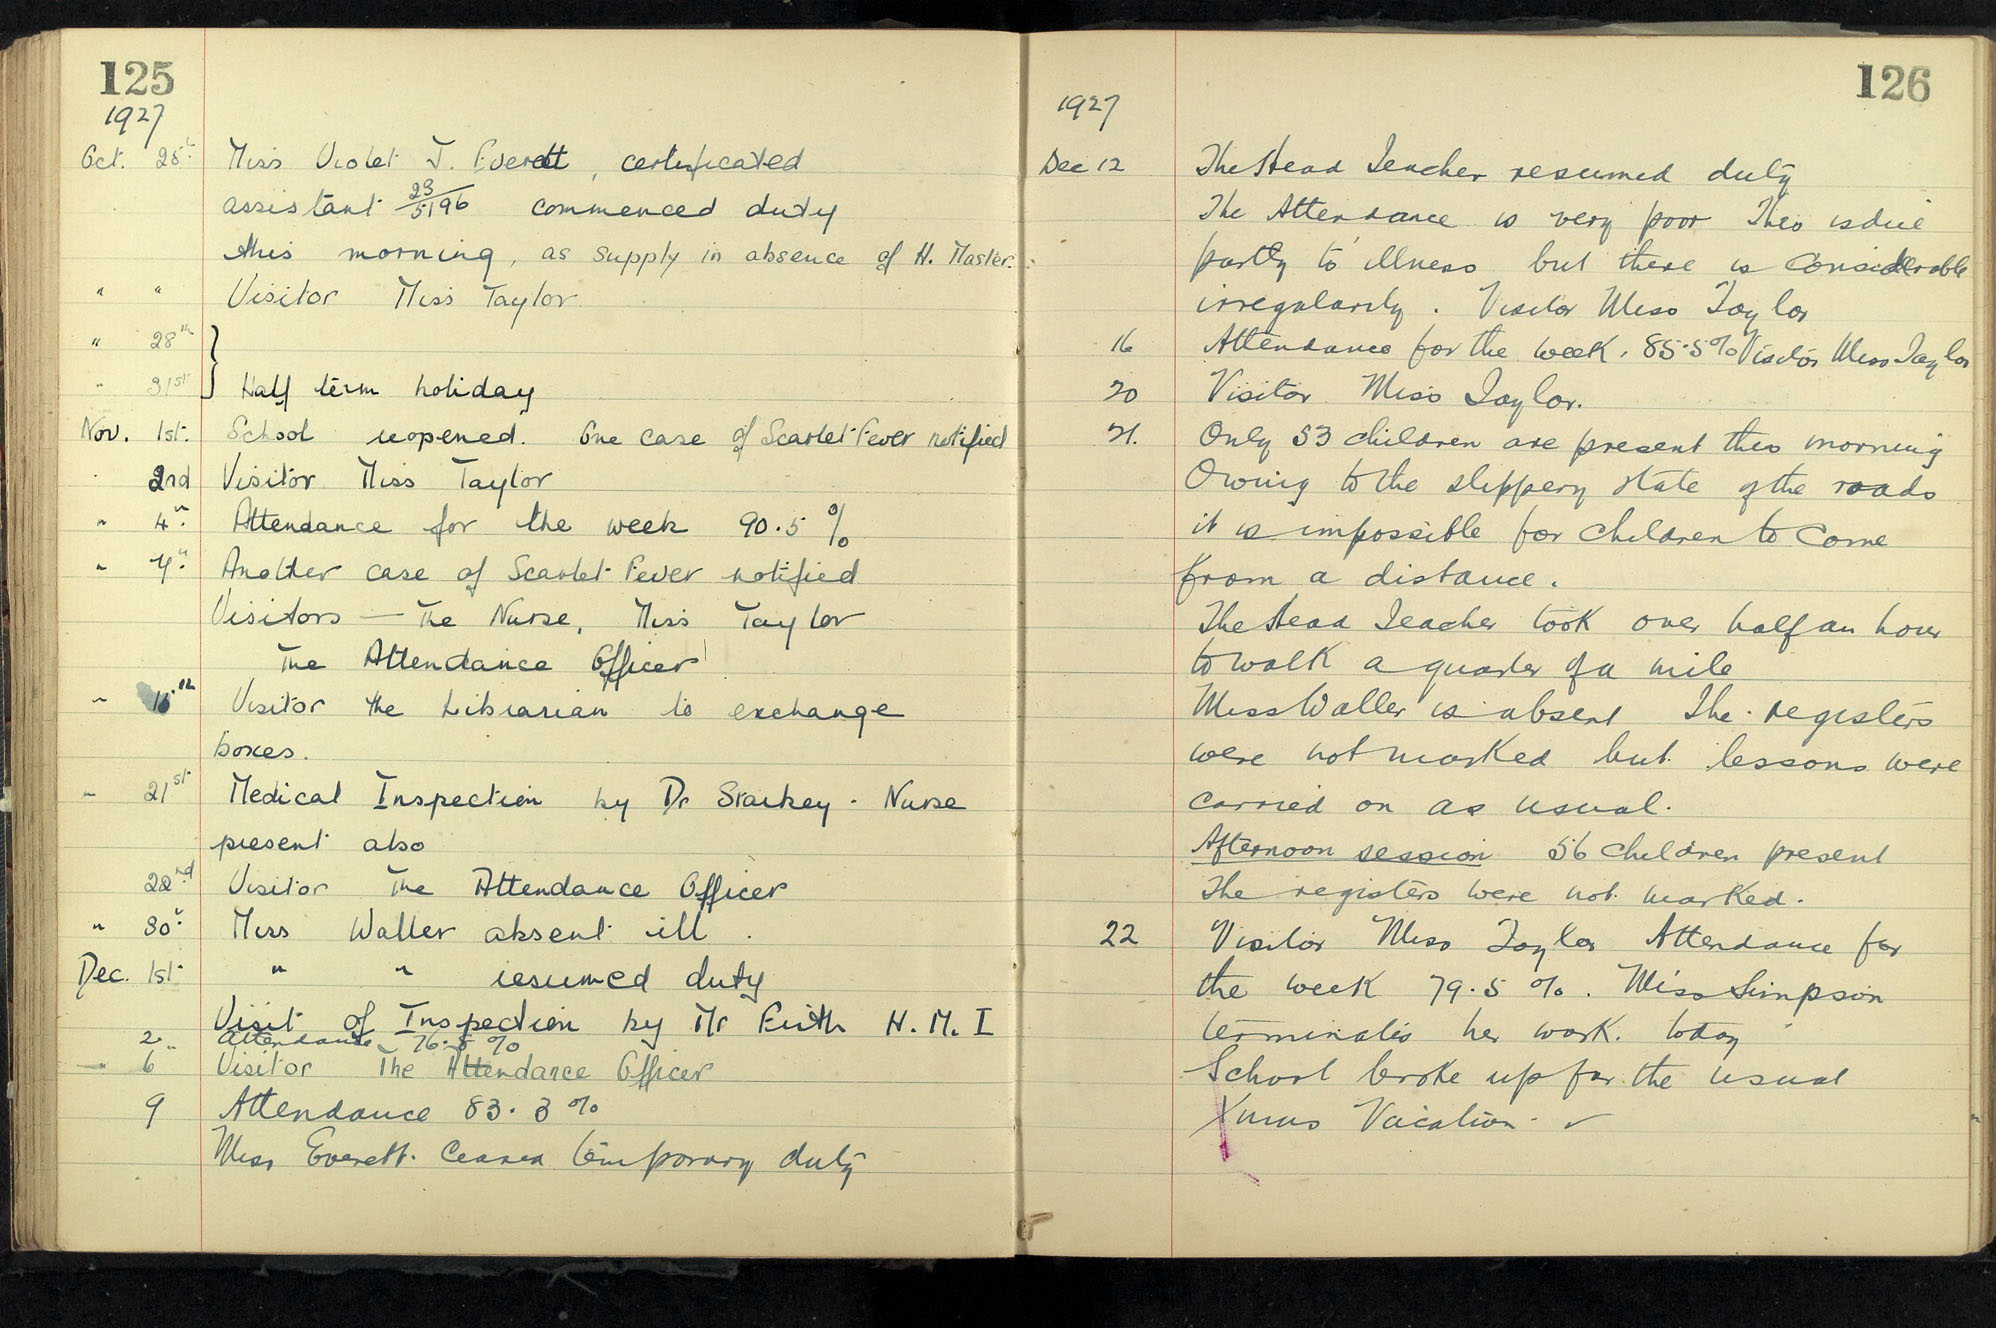 125
1927
Oct. 25th Miss Violet J. Everett, certificated
assistant 23/5196 commenced duty
this morning, as supply in absence of H. Master.
" " Visitor Miss Taylor
" 28th
" 31st Half term holiday
Nov. 1st. School reopened. One case of Scarlet Fever notified
2nd Visitor Miss Taylor
" 4th Attendance for the week 90.5 %
" 7th Another case of Scarlet Fever notified
Visitors — The Nurse, Miss Taylor
The Attendance Officer
" th Visitor the Librarian to exchange
boxes.
" 21st Medical Inspection by Dr Starkey - Nurse
present also
22nd Visitor The Attendance Officer
" 30th Miss Waller absent ill.
Dec. 1st " " resumed duty
Visit of Inspection by Mr Frith H.M.I
2 " Attendance 76.5 %
" 6 Visitor The Attendance Officer
9 Attendance 83.3 %
Miss Everett. Ceased temporary duty
126
1927
Dec 12 The Head Teacher resumed duty
The Attendance is very poor This is due
partly to illness but there is considerable
irregularity. Visitor Miss Taylor
16 Attendance for the week. 85.5% Visitor Miss Taylor
20 Visitor Miss Taylor.
21. Only 53 children are present this morning
Owing to the slippery state of the roads
it is impossible for children to come
from a distance.
The Head Teacher took over half an hour
to walk a quarter of a mile
Miss Waller is absent The registers
were not marked but lessons were
carried on as usual.
Afternoon session 56 children present
The registers were not marked.
22 Visitor Miss Taylor Attendance for
the week 79.5 %. Miss Simpson
terminates her work. today
School broke up for the usual
Xmas Vacation.